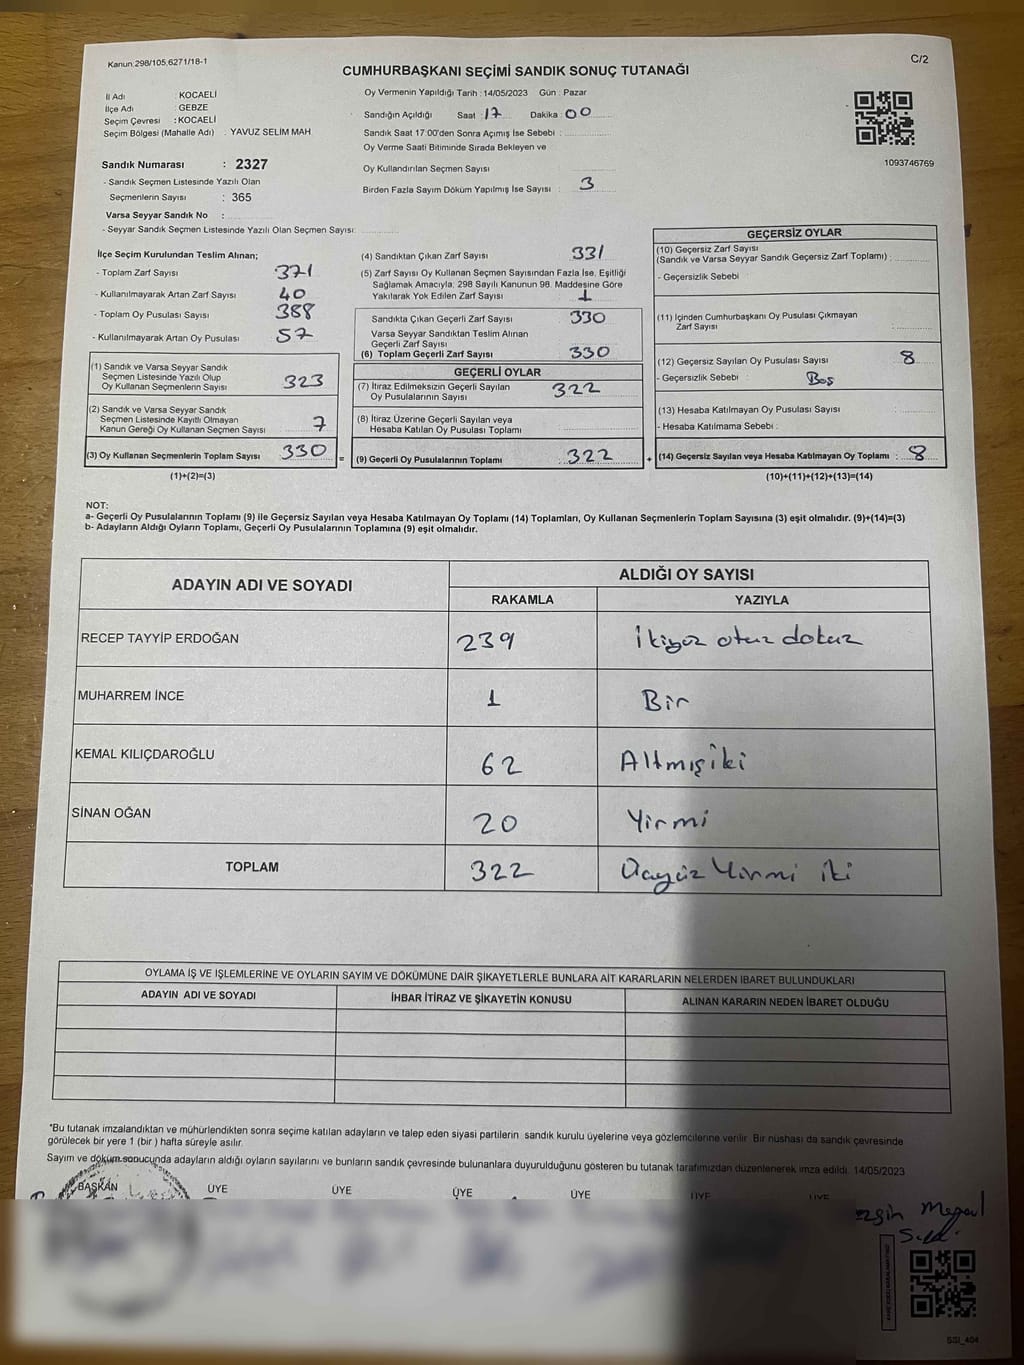 Kanun:298/105,6271/18-1
C/2
CUMHURBAŞKANI SEÇİMİ SANDIK SONUÇ TUTANAĞI
İl Adı : KOCAELİ
İlçe Adı : GEBZE
Seçim Çevresi : KOCAELİ
Seçim Bölgesi (Mahalle Adı) : YAVUZ SELİM MAH
Sandık Numarası : 2327
- Sandık Seçmen Listesinde Yazılı Olan
Seçmenlerin Sayısı : 365
Varsa Seyyar Sandık No :
- Seyyar Sandık Seçmen Listesinde Yazılı Olan Seçmen Sayısı:
Oy Vermenin Yapıldığı Tarih : 14/05/2023 Gün : Pazar
Sandığın Açıldığı Saat : 17 Dakika : 00
Sandık Saat 17:00'den Sonra Açımış İse Sebebi :
Oy Verme Saati Bitiminde Sırada Bekleyen ve
Oy Kullandırılan Seçmen Sayısı
Birden Fazla Sayım Döküm Yapılmış İse Sayısı : 3
1093746769
İlçe Seçim Kurulundan Teslim Alınan;
- Toplam Zarf Sayısı 371
- Kullanılmayarak Artan Zarf Sayısı 40
- Toplam Oy Pusulası Sayısı 388
- Kullanılmayarak Artan Oy Pusulası 57
(1) Sandık ve Varsa Seyyar Sandık
Seçmen Listesinde Yazılı Olup
Oy Kullanan Seçmenlerin Sayısı 323
(2) Sandık ve Varsa Seyyar Sandık
Seçmen Listesinde Kayıtlı Olmayan
Kanun Gereği Oy Kullanan Seçmen Sayısı 7
(3) Oy Kullanan Seçmenlerin Toplam Sayısı 330
(1)+(2)=(3)
(4) Sandıktan Çıkan Zarf Sayısı 331
(5) Zarf Sayısı Oy Kullanan Seçmen Sayısından Fazla İse, Eşitliği
Sağlamak Amacıyla; 298 Sayılı Kanunun 98. Maddesine Göre
Yakılarak Yok Edilen Zarf Sayısı : 1
Sandıkta Çıkan Geçerli Zarf Sayısı 330
Varsa Seyyar Sandıktan Teslim Alınan
Geçerli Zarf Sayısı
(6) Toplam Geçerli Zarf Sayısı 330
GEÇERLİ OYLAR
(7) İtiraz Edilmeksizin Geçerli Sayılan
Oy Pusulalarının Sayısı 322
(8) İtiraz Üzerine Geçerli Sayılan veya
Hesaba Katılan Oy Pusulası Toplamı
= (9) Geçerli Oy Pusulalarının Toplamı 322 +
GEÇERSİZ OYLAR
(10) Geçersiz Zarf Sayısı
(Sandık ve Varsa Seyyar Sandık Geçersiz Zarf Toplamı) :
- Geçersizlik Sebebi :
(11) İçinden Cumhurbaşkanı Oy Pusulası Çıkmayan
Zarf Sayısı :
(12) Geçersiz Sayılan Oy Pusulası Sayısı 8
- Geçersizlik Sebebi : Boş
(13) Hesaba Katılmayan Oy Pusulası Sayısı
- Hesaba Katılmama Sebebi :
(14) Geçersiz Sayılan veya Hesaba Katılmayan Oy Toplamı : 8
(10)+(11)+(12)+(13)=(14)
NOT:
a- Geçerli Oy Pusulalarının Toplamı (9) ile Geçersiz Sayılan veya Hesaba Katılmayan Oy Toplamı (14) Toplamları, Oy Kullanan Seçmenlerin Toplam Sayısına (3) eşit olmalıdır. (9)+(14)=(3)
b- Adayların Aldığı Oyların Toplamı, Geçerli Oy Pusulalarının Toplamına (9) eşit olmalıdır.
ADAYIN ADI VE SOYADI ALDIĞI OY SAYISI
RAKAMLA YAZIYLA
RECEP TAYYİP ERDOĞAN 239 İkiyüz otuz dokuz
MUHARREM İNCE 1 Bir
KEMAL KILIÇDAROĞLU 62 Altmışiki
SİNAN OĞAN 20 Yirmi
TOPLAM 322 Üçyüz Yirmi iki
OYLAMA İŞ VE İŞLEMLERİNE VE OYLARIN SAYIM VE DÖKÜMÜNE DAİR ŞİKAYETLERLE BUNLARA AİT KARARLARIN NELERDEN İBARET BULUNDUKLARI
ADAYIN ADI VE SOYADI İHBAR İTİRAZ VE ŞİKAYETİN KONUSU ALINAN KARARIN NEDEN İBARET OLDUĞU
*Bu tutanak imzalandıktan ve mühürlendikten sonra seçime katılan adayların ve talep eden siyasi partilerin sandık kurulu üyelerine veya gözlemcilerine verilir. Bir nüshası da sandık çevresinde
görülecek bir yere 1 (bir) hafta süreyle asılır.
Sayım ve döküm sonucunda adayların aldığı oyların sayılarını ve bunların sandık çevresinde bulunanlara duyurulduğunu gösteren bu tutanak tarafımızdan düzenlenerek imza edildi. 14/05/2023
BAŞKAN ÜYE ÜYE ÜYE ÜYE ÜYE ÜYE
SSI_404